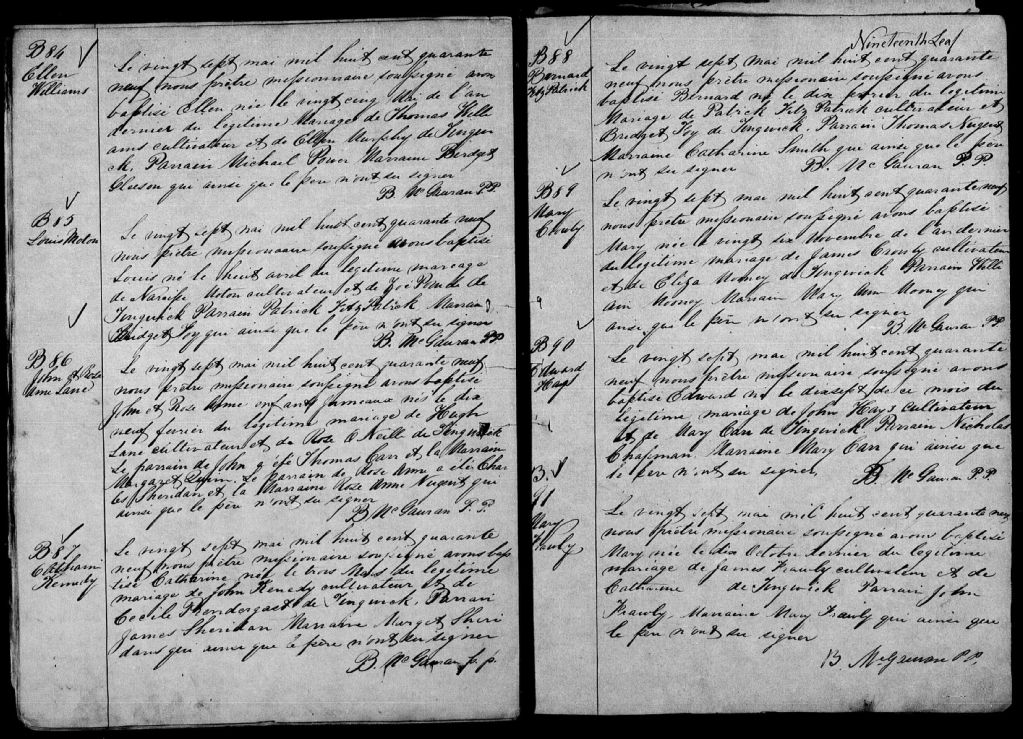 B 84
Ellen
Williams
Le vingt sept mai mil huit cent quarante
neuf nous prêtre missionnaire soussigné avons
baptisé Ellen née le vingt cinq Mai de l'an
dernier du légitime Mariage de Thomas Will
ams cultivateur et de Ellen Murphy de Tingwi
ck. Parrain Michael Power Marraine Berdget
Gleeson qui ainsi que le père n'ont su signer
B. McGauran P.P.
B 85
Louis Moton
Le vingt sept mai mil huit cent quarante neuf
nous prêtre missionnaire soussigné avons baptisé
Louis né le huit avril du legitime mareage
de Narcisse Moton cultivateur et de Zoé de
Tingwick Parrain Patrick Fitz Patrick Marrain
Bridget Foy qui ainsi que le père n'ont su signer
B. McGauran P.P.
B 86
John et Rose
Anne Lane
Le vingt sept mai mil huit cent quarante neuf
nous prêtre missionaire soussigné avons baptisé
John et Rose Anne enfants jumeaux nés le dix
neuf fevrier du legitime mariage de Hugh
Lane cultivateur et de Rose O'Neill de Tingwick
Le parrain de John a été Thomas Carr et la Marraine
Margaret Le parrain de Rose Ann a été Char
les Sheridan et la Marraine Rose Anne Nugent qui
ainsi que le père n'ont su signer
B McGauran P.P.
B 87
Kennedy
Le vingt sept mai mil huit cent quarante
neuf nous prêtre missionaire soussigné avons bap
tisé Catherine née le trois Mars du legitime
mariage de John Kenedy cultivateur et de
Cecile Prendergast de Tingwick. Parrain
James Sheridan Marraine Margret Sheri
dan qui ainsi que le père n'ont su signer
B. McGauran p.p.
Nineteenth Leaf
B 88
Bernard
Fitz Patrick
Le vingt sept mai mil huit cent quarante
neuf nous prêtre missionaire soussigné avons
baptisé Bernard né le dix fevrier du legitime
Mariage de Patrick Fitz Patrick cultivateur et
Bridget Foy de Tingwick. Parrain Thomas Nugent
Marraine Catharine Smith qui ainsi que le père
n'ont su signer
B. McGauran P.P.
B 89
Mary
Le vingt sept mai mil huit cent quarante neuf
nous prêtre missionaire soussigné avons baptisé
Mary née le vingt six Novembre de l'an dernier
du legitime mariage de James cultivateur
et de Eliza Mooney de Tingwick Parrain Willi
am Mooney Marrain Mary Ann Mooney qui
ainsi que le père n'ont su signer
B. McGauran P.P.
B 90
Edward
Hays
Le vingt sept mai mil huit cent quarante
neuf nous prêtre missionaire soussigné avons
baptisé Edward né le dix sept de ce mois du
légitime mariage de John Hays cultivateur
et de Mary Carr de Tingwick Parrain Nicholas
Chapman Marraine Mary Carr qui ainsi que
le père n'ont su signer
B McGauran P.P.
B.
91
Mary
Frawly
Le vingt sept mai mil huit cent quarante neuf
nous prêtre missionaire soussigné avons baptisé
Mary née le dix Octobre dernier du legitime
mariage de James Frawly cultivateur et de
Catharine de Tingwick Parrain John
Frawly Marraine Mary Frawly qui ainsi que
le père n'ont su signer
B McGauran P.P.